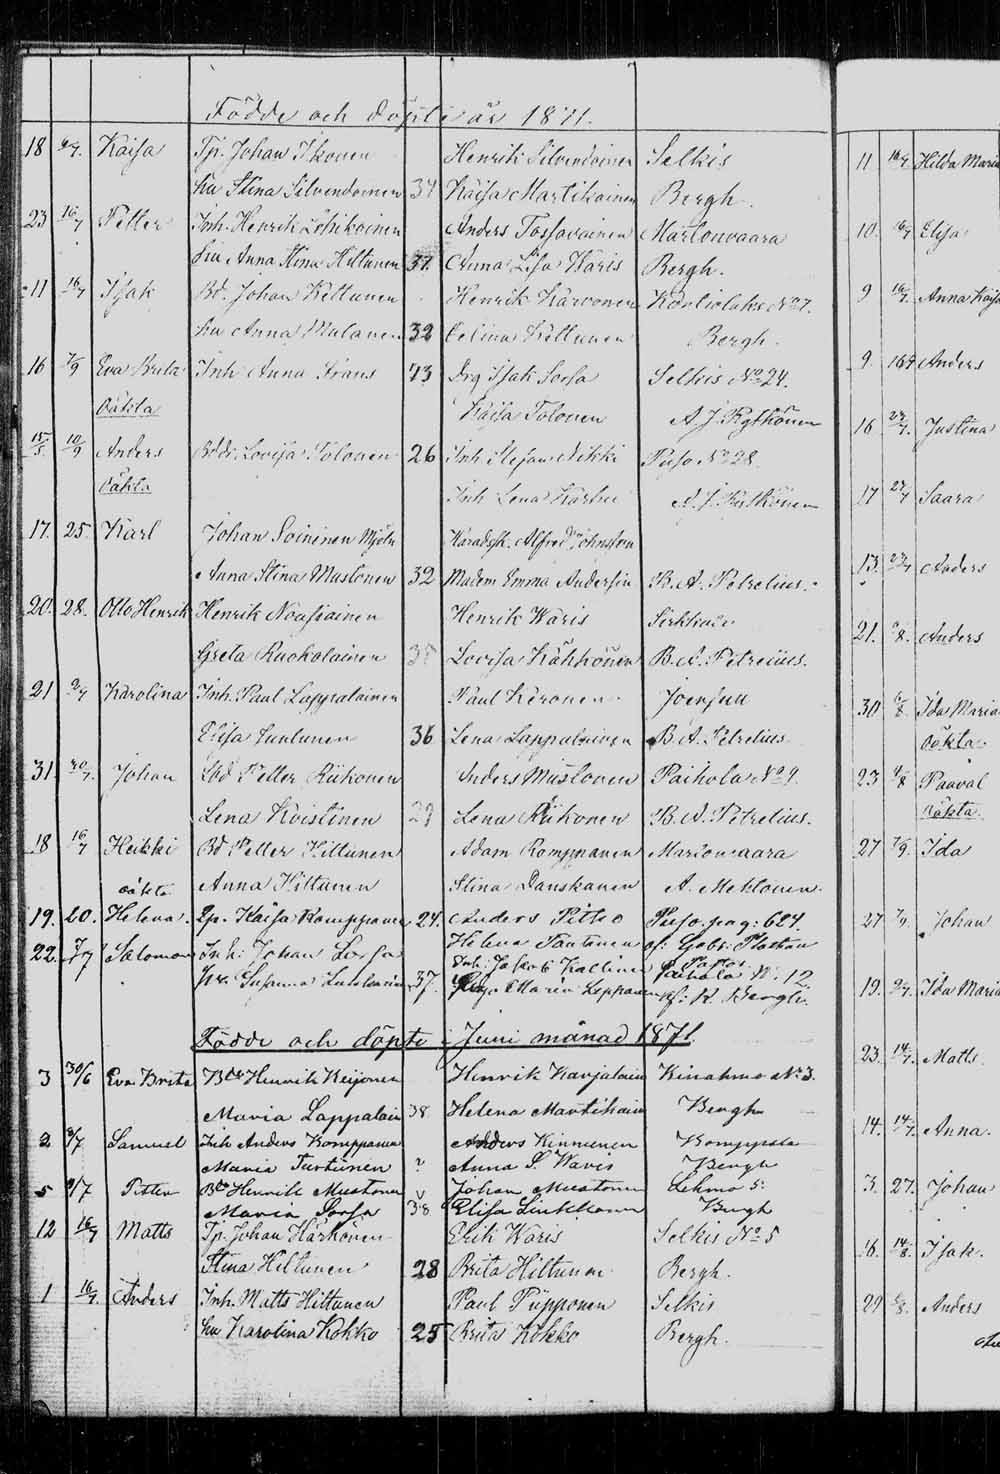 Födde och döpte år 1871.
18 9/7. Kaisa Tp. Johan Ikonen Henrik Silvendoinen Selkis
hu Stina Silvendoinen 34 Kaisa Martikainen Bergh.
23 16/7 Petter Inh. Henrik Anders Tossavainen Martonvaara
hu Anna Stina Hiltunen 37. Anna Lisa Waris Bergh.
11 16/7 Isak Bd. Johan Kettunen Henrik Karvonen Kontiolaks No 7.
hu Anna Mulanen 32 Celina Kettunen Bergh.
16 7/9 Eva Brita Inh Anna Frans 43 Drg Isak Sorsa Selkis No 24.
Oäkta Kaisa Tolonen A. J. Kytkönen
15/5. 10/9 Anders Bddr. Lovisa Tolonen 26 Inh Stefan Nikki Puso No 28.
Oäkta Inh Lena Karhu A. J. Kytkönen
17. 25. Karl Johan Soininen Mjöln Häradssk. Alfred Johnsson
Anna Stina Mustonen 32 Madem Emma Andersin B. A. Petrelius.
20. 28. Otto Henrik Henrik Nousiainen Henrik Waris
Greta Ruokolainen Lovisa Kähkönen B. A. Petrelius.
21 2/7 Karolina Inh. Paul Lappalainen Paul Keronen Joensuu
Elisa Luntunen 36 Lena Lappalainen B. A. Petrelius.
31. 30/7. Johan Lbd Petter Riikonen Anders Mustonen Paihola No 9.
Lena Koistinen 29 Lena Riikonen B. A. Petrelius.
18 16/7 Heikki Bd Petter Kittunen Adam Romppanen Martonvaara
oäkta Anna Hiltunen Stina Danskanen A. Meklonen.
19. 20. Helena. Tp. Kaisa Romppanen 24. Anders Pitko Puso pag: 624.
22. 7/7 Salomon Inh: Johan Sorsa Helena Tantunen af: Gabr: Plathan
Inh: Jakob Kallinen Paihola No. 12.
hu Susanna 37. Maria Lappalainen af: K. Bergh.
Födde och döpte i Juni månad 1871.
3 30/6 Eva Brita Bd Henrik Keijonen Henrik Karjalain Kinahmo No 3.
Maria Lappalain 38 Helena Martikain Bergh
2 2/7 Samuel Inh Anders Romppanen Anders Kinnunen Romppala
Maria Turtinen ? Anna S. Waris Bergh
5 9/7 Petter Bd Henrik Mustonen Johan Mustonen Lehmo 5:
Maria Sorsa 38 Elisa Bergh
12 16/7 Matts Tp. Johan Härkönen Erik Waris Selkis No 5
Stina Hiltunen 28 Brita Hiltunen Bergh.
1 16/7. Anders Inh. Matts Hiltunen Paul Piipponen Selkis
hu Karolina Kokko 25 Brita Kokko Bergh.
11 16/7 Hilda Maria
10. 16/7 Elisa
9 16/7. Anna Kaisa
9. 16/7 Anders
16 Justina
17 Saara
13. Anders
21. Anders
30 Ida Maria
Oäkta
23 Paaval
oäkta.
27 Ida
27 Johan
19. Ida Maria
23. 14/7. Matts
14. 14/7 Anna.
3. 27. Johan
16. 14/8. Isak.
29 Anders